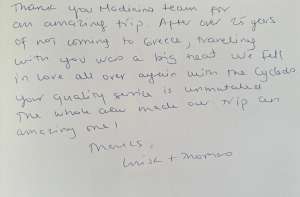 Thank you Madinina team for
an amazing trip. After over 25 years
of not coming to Greece, traveling
with you was a big treat we fell
in love all over again with the Cyclads
your quality service is unmatched
The whole crew made our trip an
amazing one!
Thanks,
+ Thomas